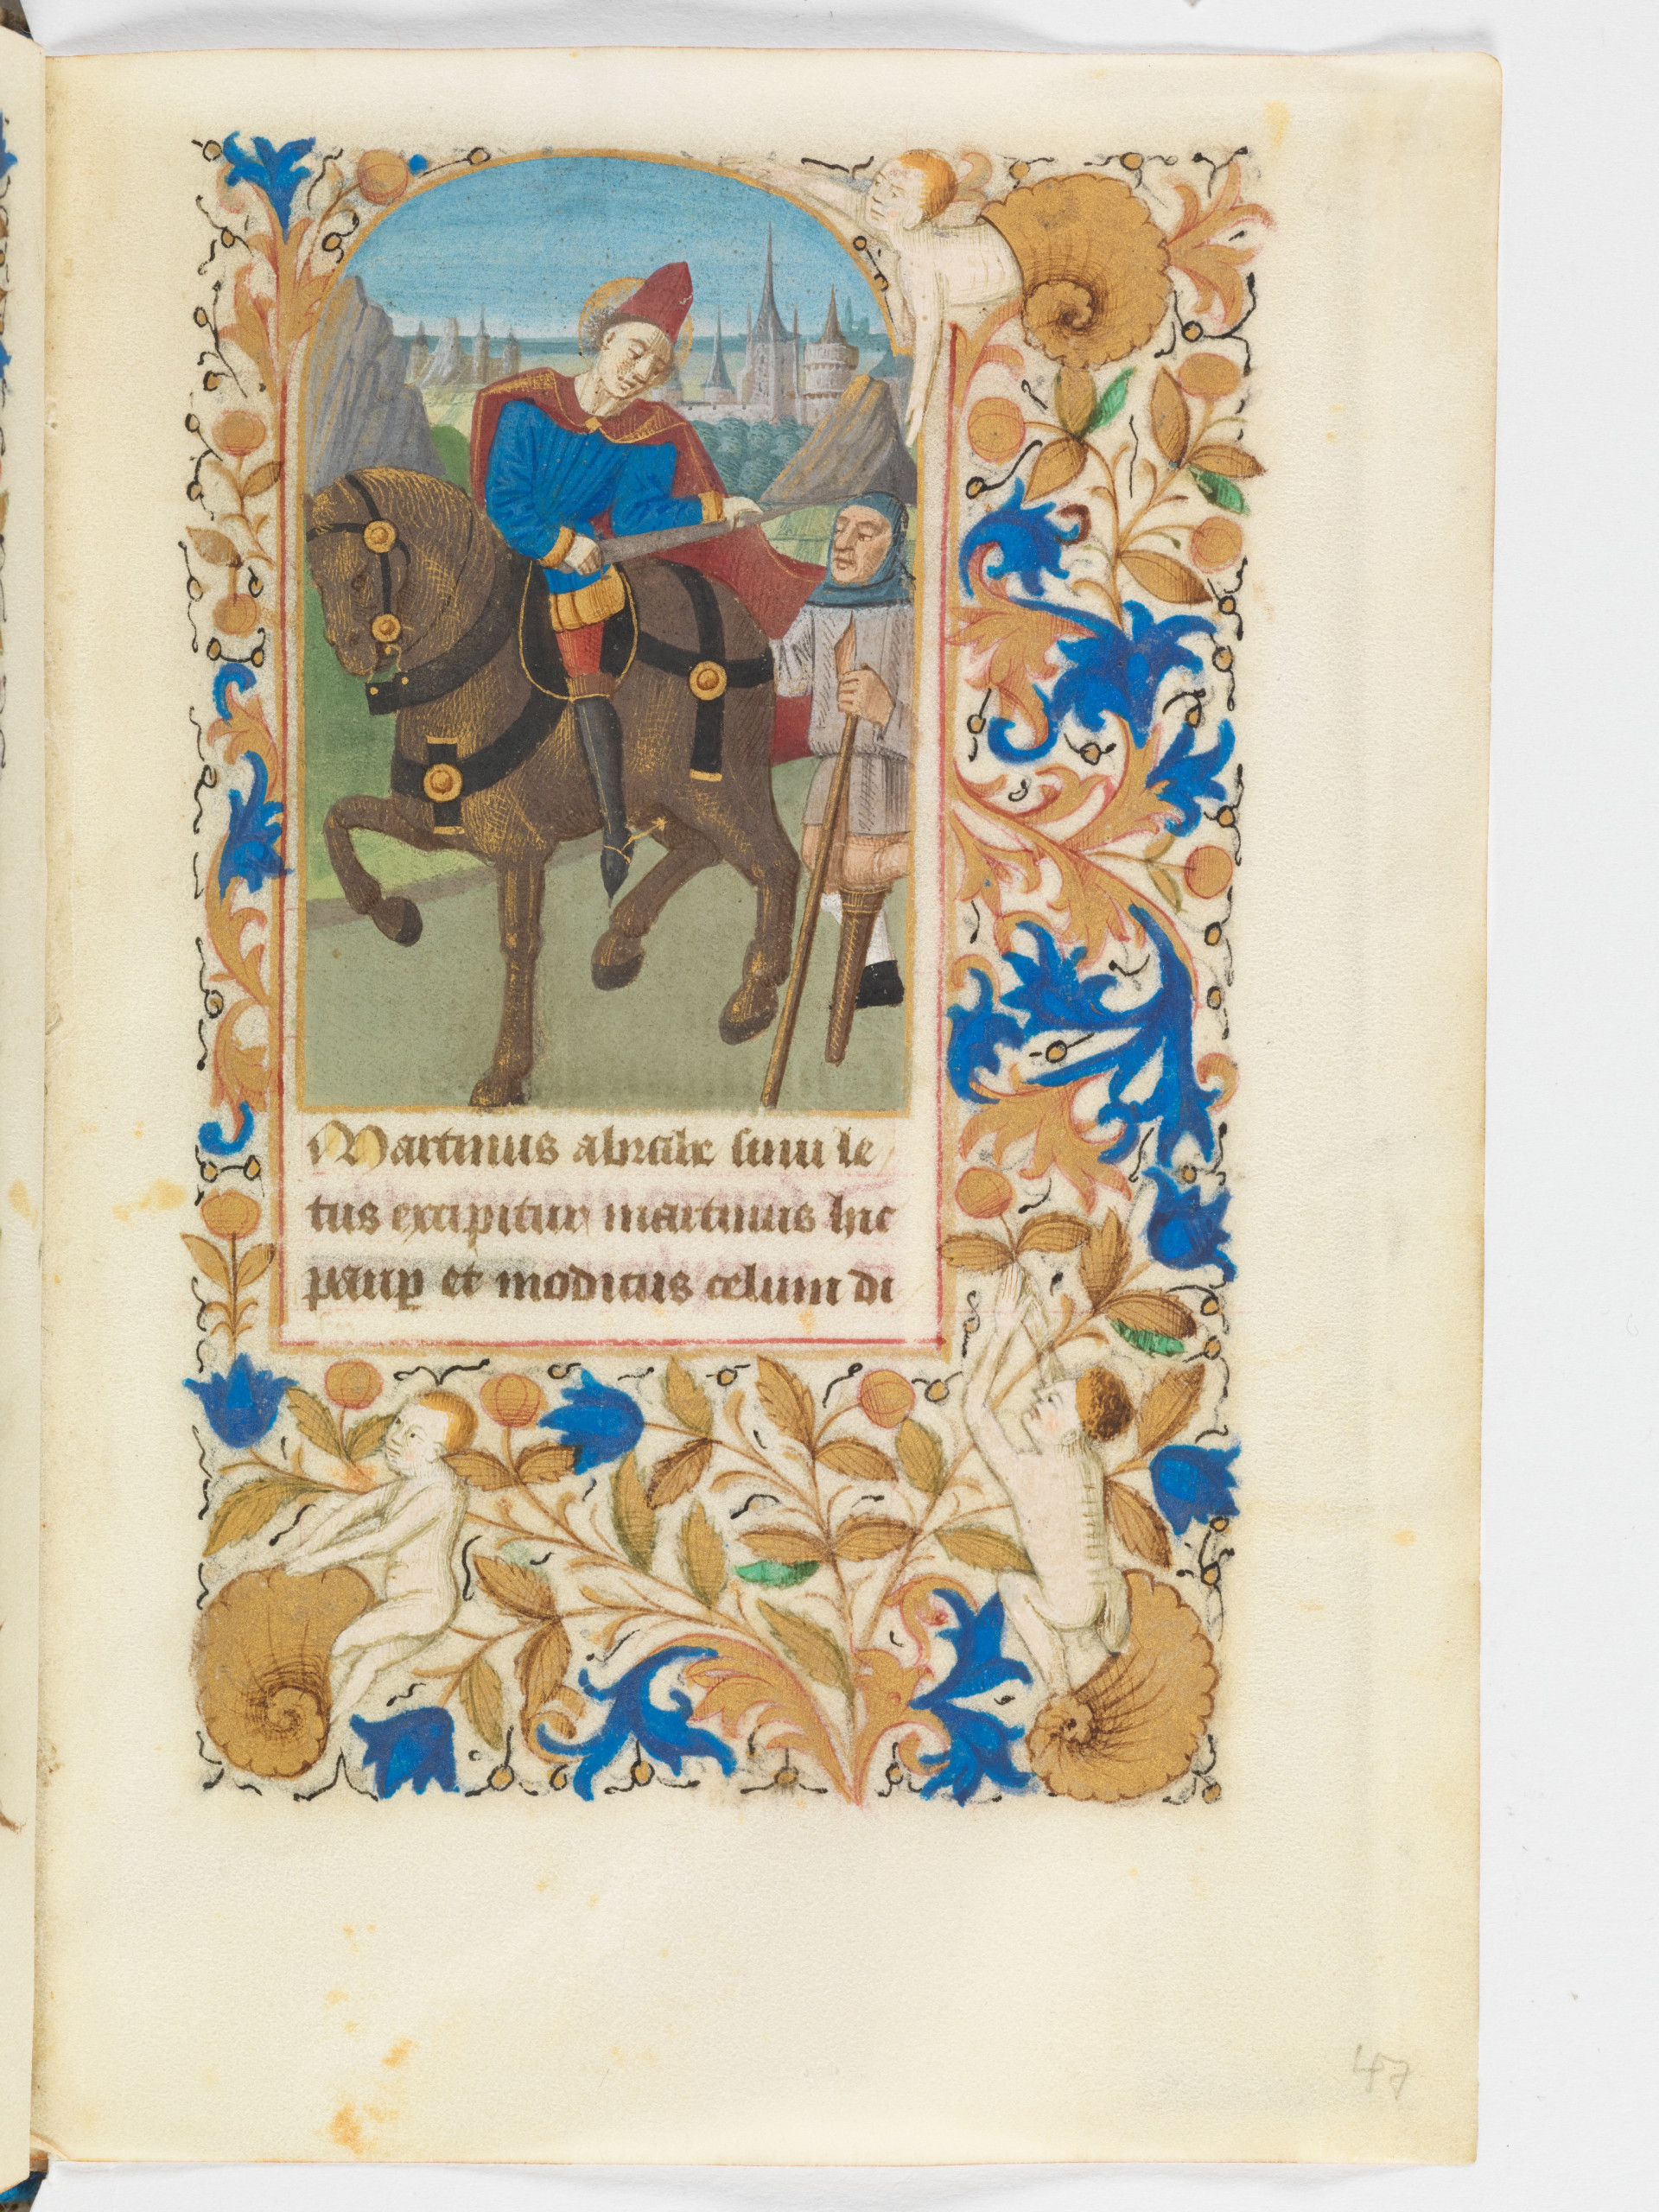 Martinus abrahe sinu le
tus excipitur martinus hic
paup et modicus celum di
47